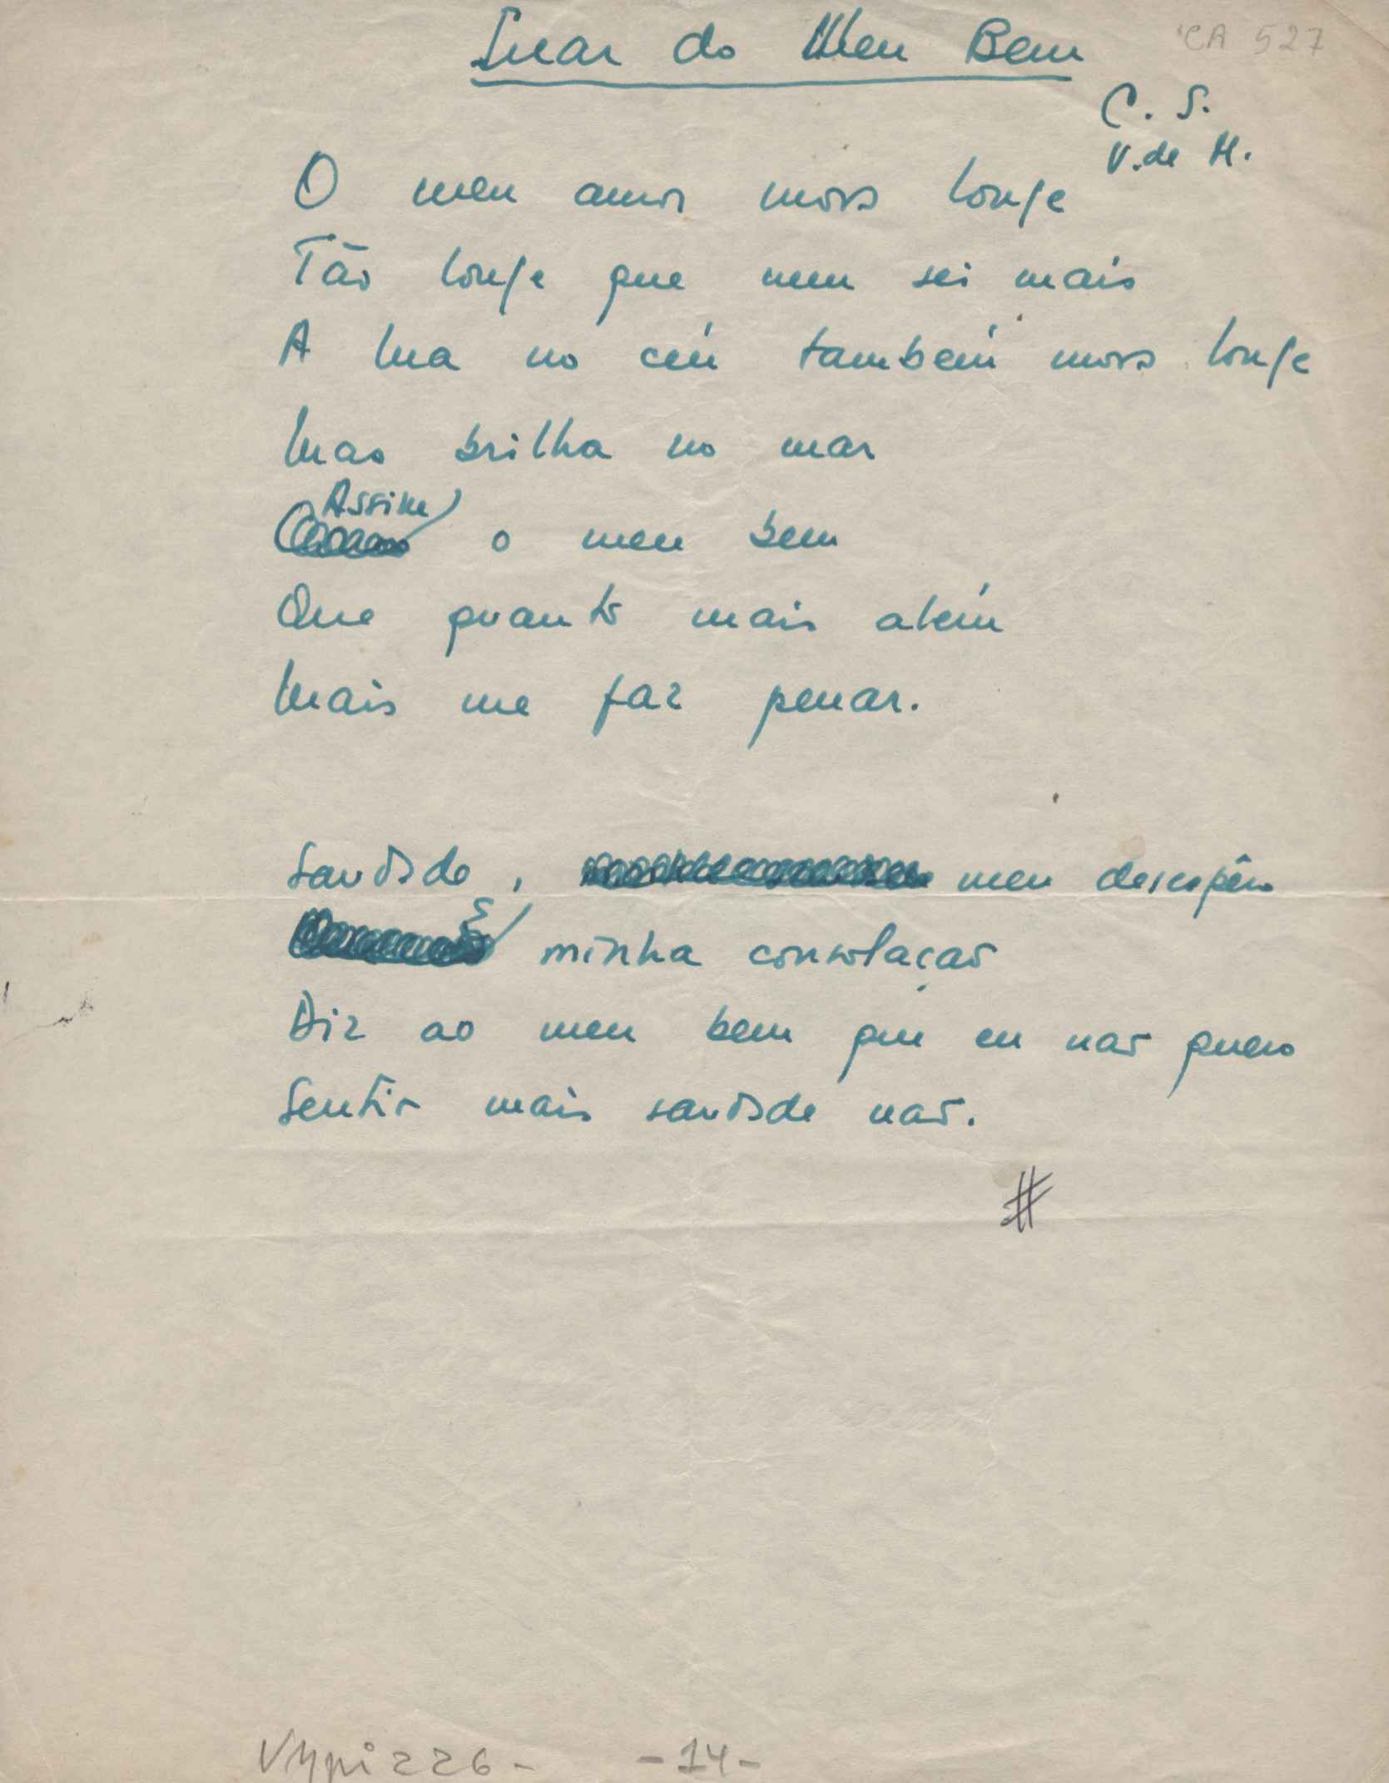 Luar do Meu Bem
CA 527
C. S.
V. de M.
O meu amor mora longe
Tão longe que nem sei mais
A lua no céu também mora longe
Mas brilha no mar
Assim
o meu bem
Que quanto mais além
Mais me faz penar.
Saudade, meu desespêro
É
minha consolação
Diz ao meu bem que eu não quero
Sentir mais saudade não.
#
- 14 -